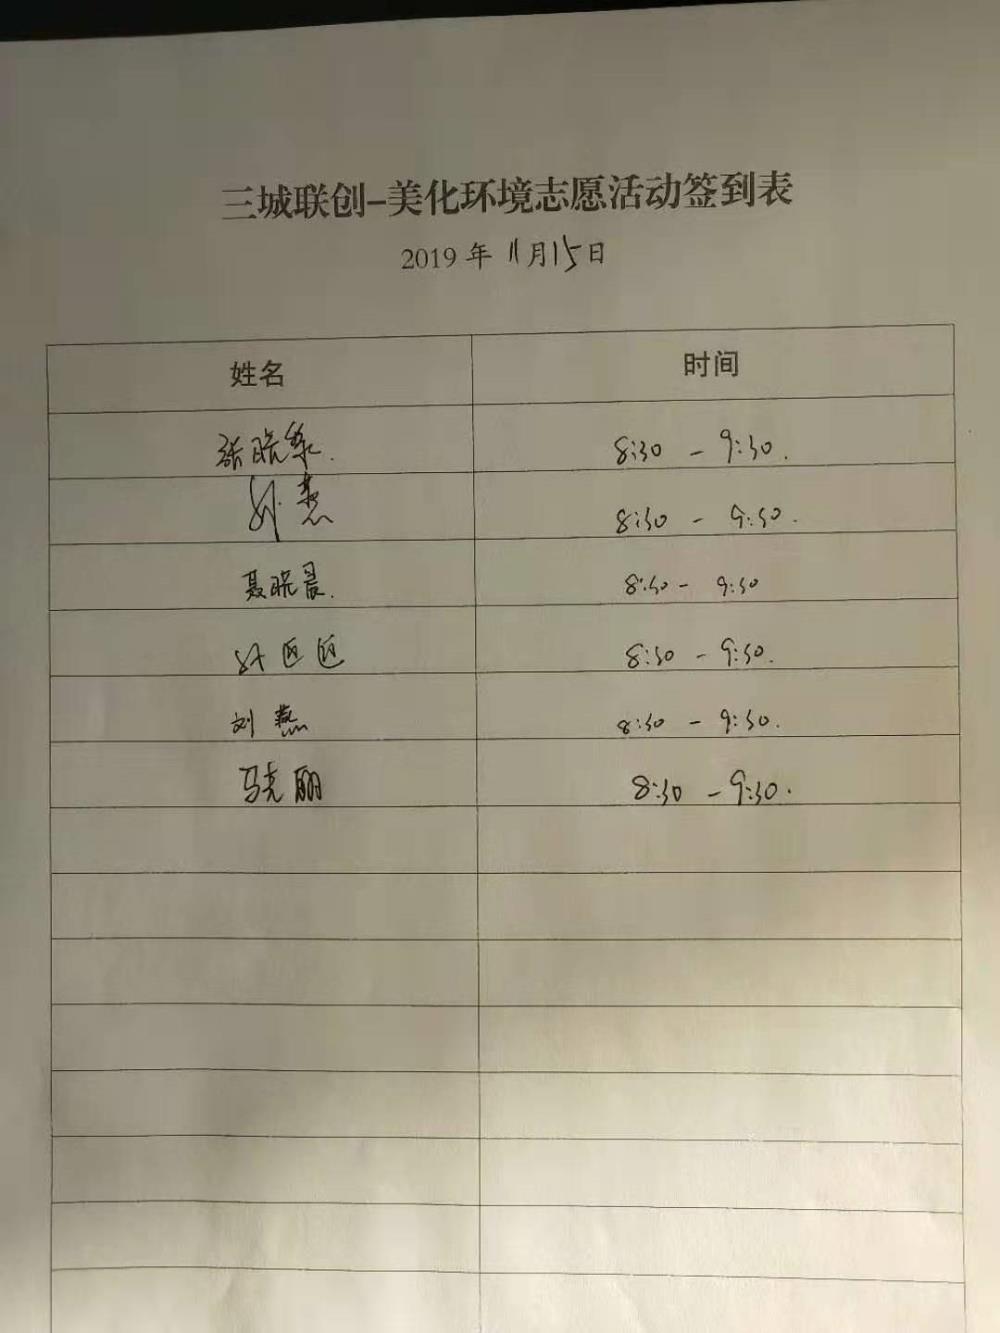 三城联创-美化环境志愿活动签到表
2019年11月15日
姓名 时间
张晓 8:30 - 9:30.
8:30 - 9:30.
聂晓晨. 8:30 - 9:30
8:30 - 9:30.
刘燕 8:30 - 9:30.
马克丽 8:30 - 9:30.